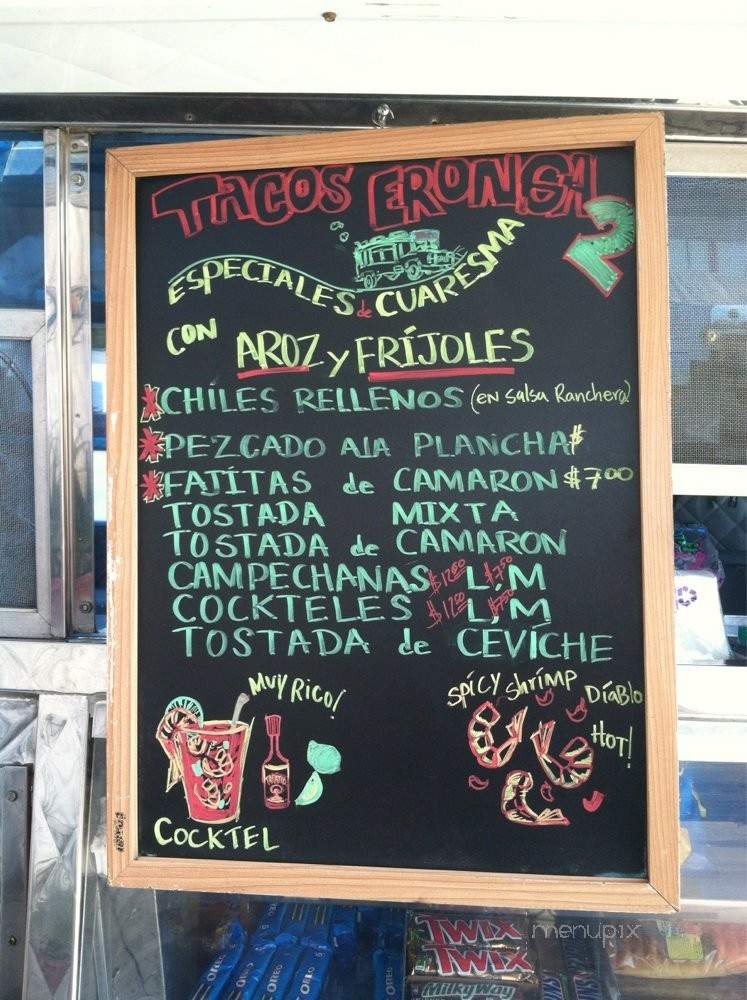 TACOS ERONSA 2
ESPECIALES de CUARESMA
CON AROZ y FRÍJOLES
CHILES RELLENOS (EN Salsa Ranchera)
PEZCADO ALA PLANCHA $
FAJÍTAS de CAMARON $7.00
TOSTADA MIXTA
TOSTADA de CAMARON
CAMPECHANAS $12.00 L, $7.50 M
COCKTELES $12.00 L, $7.50 M
TOSTADA de CEVÍCHE
MUY RICO!
SPICY Shrimp DíaBlo
HOT!
TAPATIO
COCKTEL
OREO
OREO
OREO
TWIX
TWIX
MilkyWay
menupix